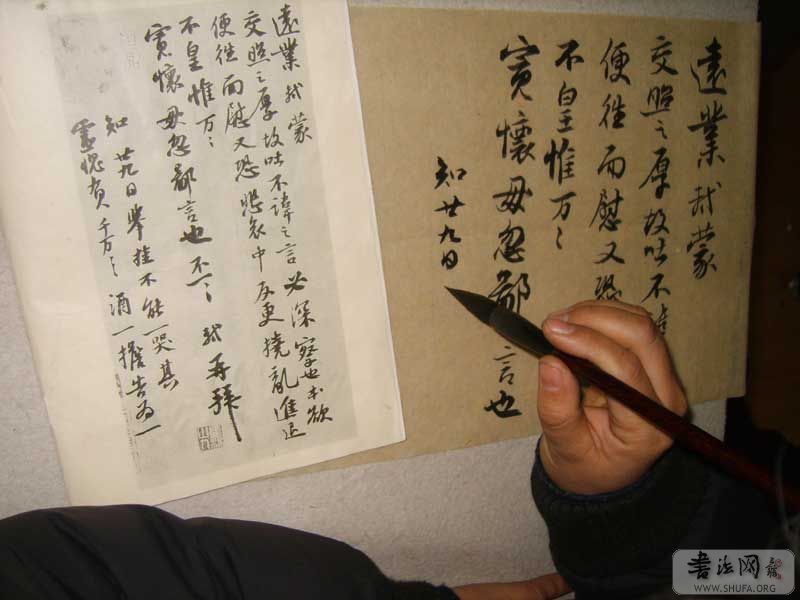 遠業軾蒙
交照之厚故吐不諱
便往面慰又恐
不皇惟万〻
寬懷毋忽鄙言也
知廿九日
遠業軾蒙
交照之厚故吐不諱之言必深察也本欲
便往面慰又恐悲哀中反更撓亂進退
不皇惟万〻
寬懷毋忽鄙言也不一〻軾再拜
知廿九日舉挂不能一哭其
靈愧負千万〻酒一擔告為一
书法网
WWW.SHUFA.ORG